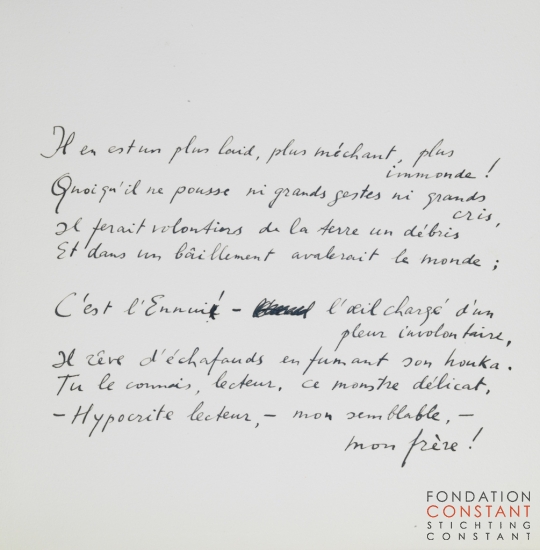 Il en est un plus laid, plus méchant, plus
immonde !
Quoiqu'il ne pousse ni grands gestes ni grands
cris,
Il ferait volontiers de la terre un débris
Et dans un bâillement avalerait le monde ;
C'est l'Ennui ! - l'œil chargé d'un
pleur involontaire,
Il rêve d'échafauds en fumant son houka.
Tu le connais, lecteur, ce monstre délicat,
- Hypocrite lecteur, - mon semblable, -
mon frère !
FONDATION
CONSTANT
STICHTING
CONSTANT